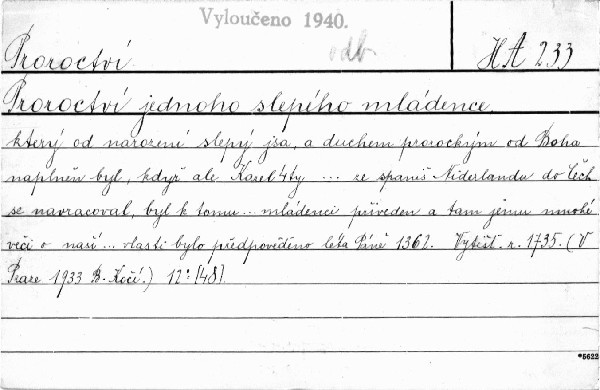 Vyloučeno 1940.
odb.
Proroctví
HA 233
Proroctví jednoho slepého mládence,
který od narození slepý jsa, a duchem prorockým od Boha
naplněn byl, když ale Karel 4tý ... ze spaniš Niderlandu do Čech
se navracoval, byl k tomu ... mládenci přiveden a tam jemu mnohé
věci o naší ... vlasti bylo předpověděno léta Páně 1362. Vytišt. r. 1735. (V
Praze 1933 B. Kočí.) 12° [48].
*5622